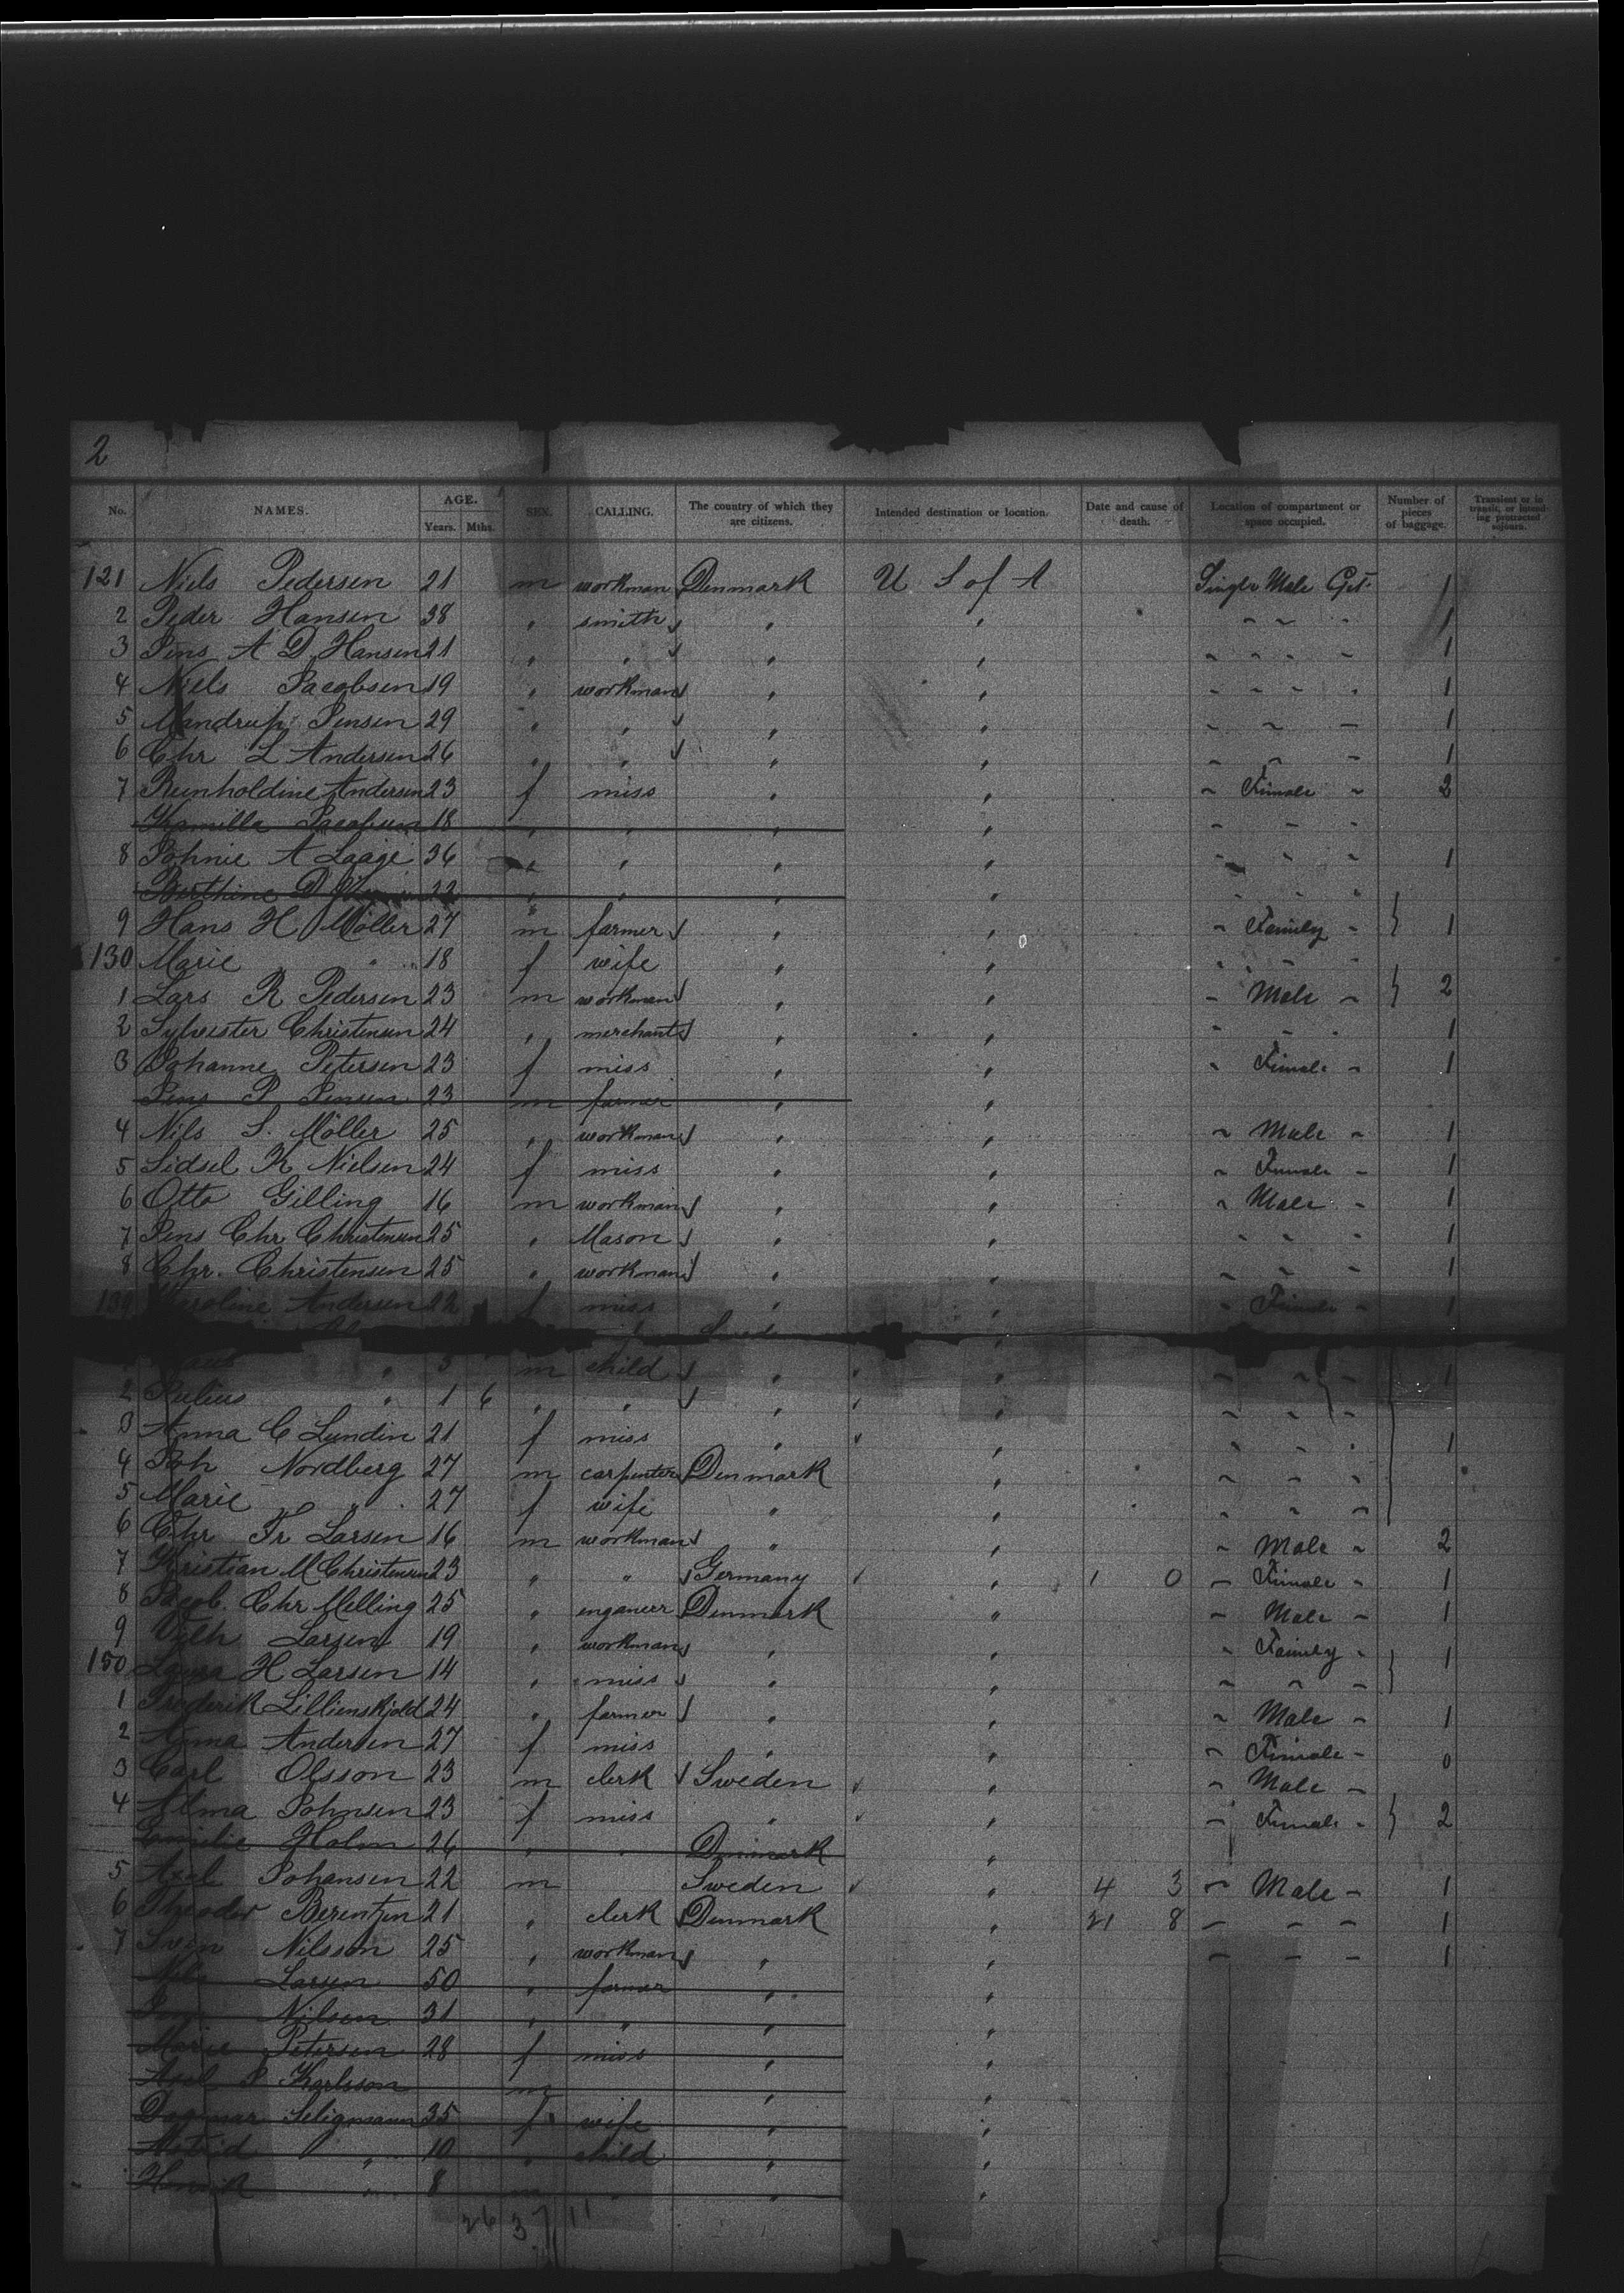 2
No. NAMES. AGE. Years. Mths. SEX. CALLING. The country of which they are citizens. Intended destination or location. Date and cause of death. Location of compartment or space occupied. Number of pieces of baggage. Transient or in transit, or intending protracted sojourn.
121 Niels Pedersen 21 m workman Denmark U S of A Single Male Cpt. 1
2 Peder Hansen 38 " smith " " " " " 1
3 Jens A D Hansen 21 " " " " " " " " 1
4 Niels Jacobsen 19 " workman " " " " " " 1
5 Mandrup Jensen 29 " " " " " " " 1
6 Chr L Andersen 26 " " " " " " " 1
7 Reinholdine Andersen 23 f miss " " " Female " 2
Kamilla Jacobsen 18 " " " " " " "
8 Johnie A Laage 36 " " " " " " " 1
Berthine D 22 " " " " " " "
9 Hans H Möller 27 m farmer " " " Family " } 1
130 Marie " 18 f wife " " " " "
1 Lars R Pedersen 23 m workman " " " Male " } 2
2 Sylvester Christensen 24 " merchant " " " " " 1
3 Johanne Petersen 23 f miss " " " Female " 1
Jens P Jensen 23 m farmer " "
4 Nils S. Möller 25 " workman " " " Male " 1
5 Sidsel K Nielsen 24 f miss " " " Female " 1
6 Otto Gilling 16 m workman " " " Male " 1
7 Jens Chr Christensen 25 " Mason " " " " " 1
8 Chr. Christensen 25 " workman " " " " " 1
139 Karoline Andersen 22 f miss " " " Female " 1
" 3 m child " " " " " 1
2 Julius " 1 6 " " " " " " "
3 Anna C Lundin 21 f miss " " " " " 1
4 Joh Nordberg 27 m carpenter Denmark " " " "
5 Marie " 27 f wife " " " " "
6 Chr Fr Larsen 16 m workman " " " Male " 2
7 Kristian M Christensen 23 " " Germany " 1 0 " Female " 1
8 Jacob. Chr Melling 25 " enganeer Denmark " " Male " 1
9 Vilh Larsen 19 " workman " " " Family " } 1
150 Laura H Larsen 14 " miss " " " " "
1 Frederik Lillienskjold 24 " farmer " " " Male " 1
2 Anna Andersen 27 f miss " " " Female " 0
3 Carl Olsson 23 m clerk Sweden " " Male "
4 Alma Johnsen 23 f miss " " " Female " } 2
Emilie Holm 26 " " Denmark "
5 Axel Johansen 22 m Sweden " 4 3 " Male " 1
6 Theodor Berentzen 21 " clerk Denmark " 21 8 " " " 1
7 Sven Nilsson 25 " workman " " " " " 1
Nils Larsen 50 " farmer " "
Nilsen 31 " " " "
Marie Petersen 28 f miss " "
Axel P Karlsson m " "
Dagmar Seligmann 35 f wife " "
Astrid " 10 " child " "
Henrik " 8 m " " "
26 37 11